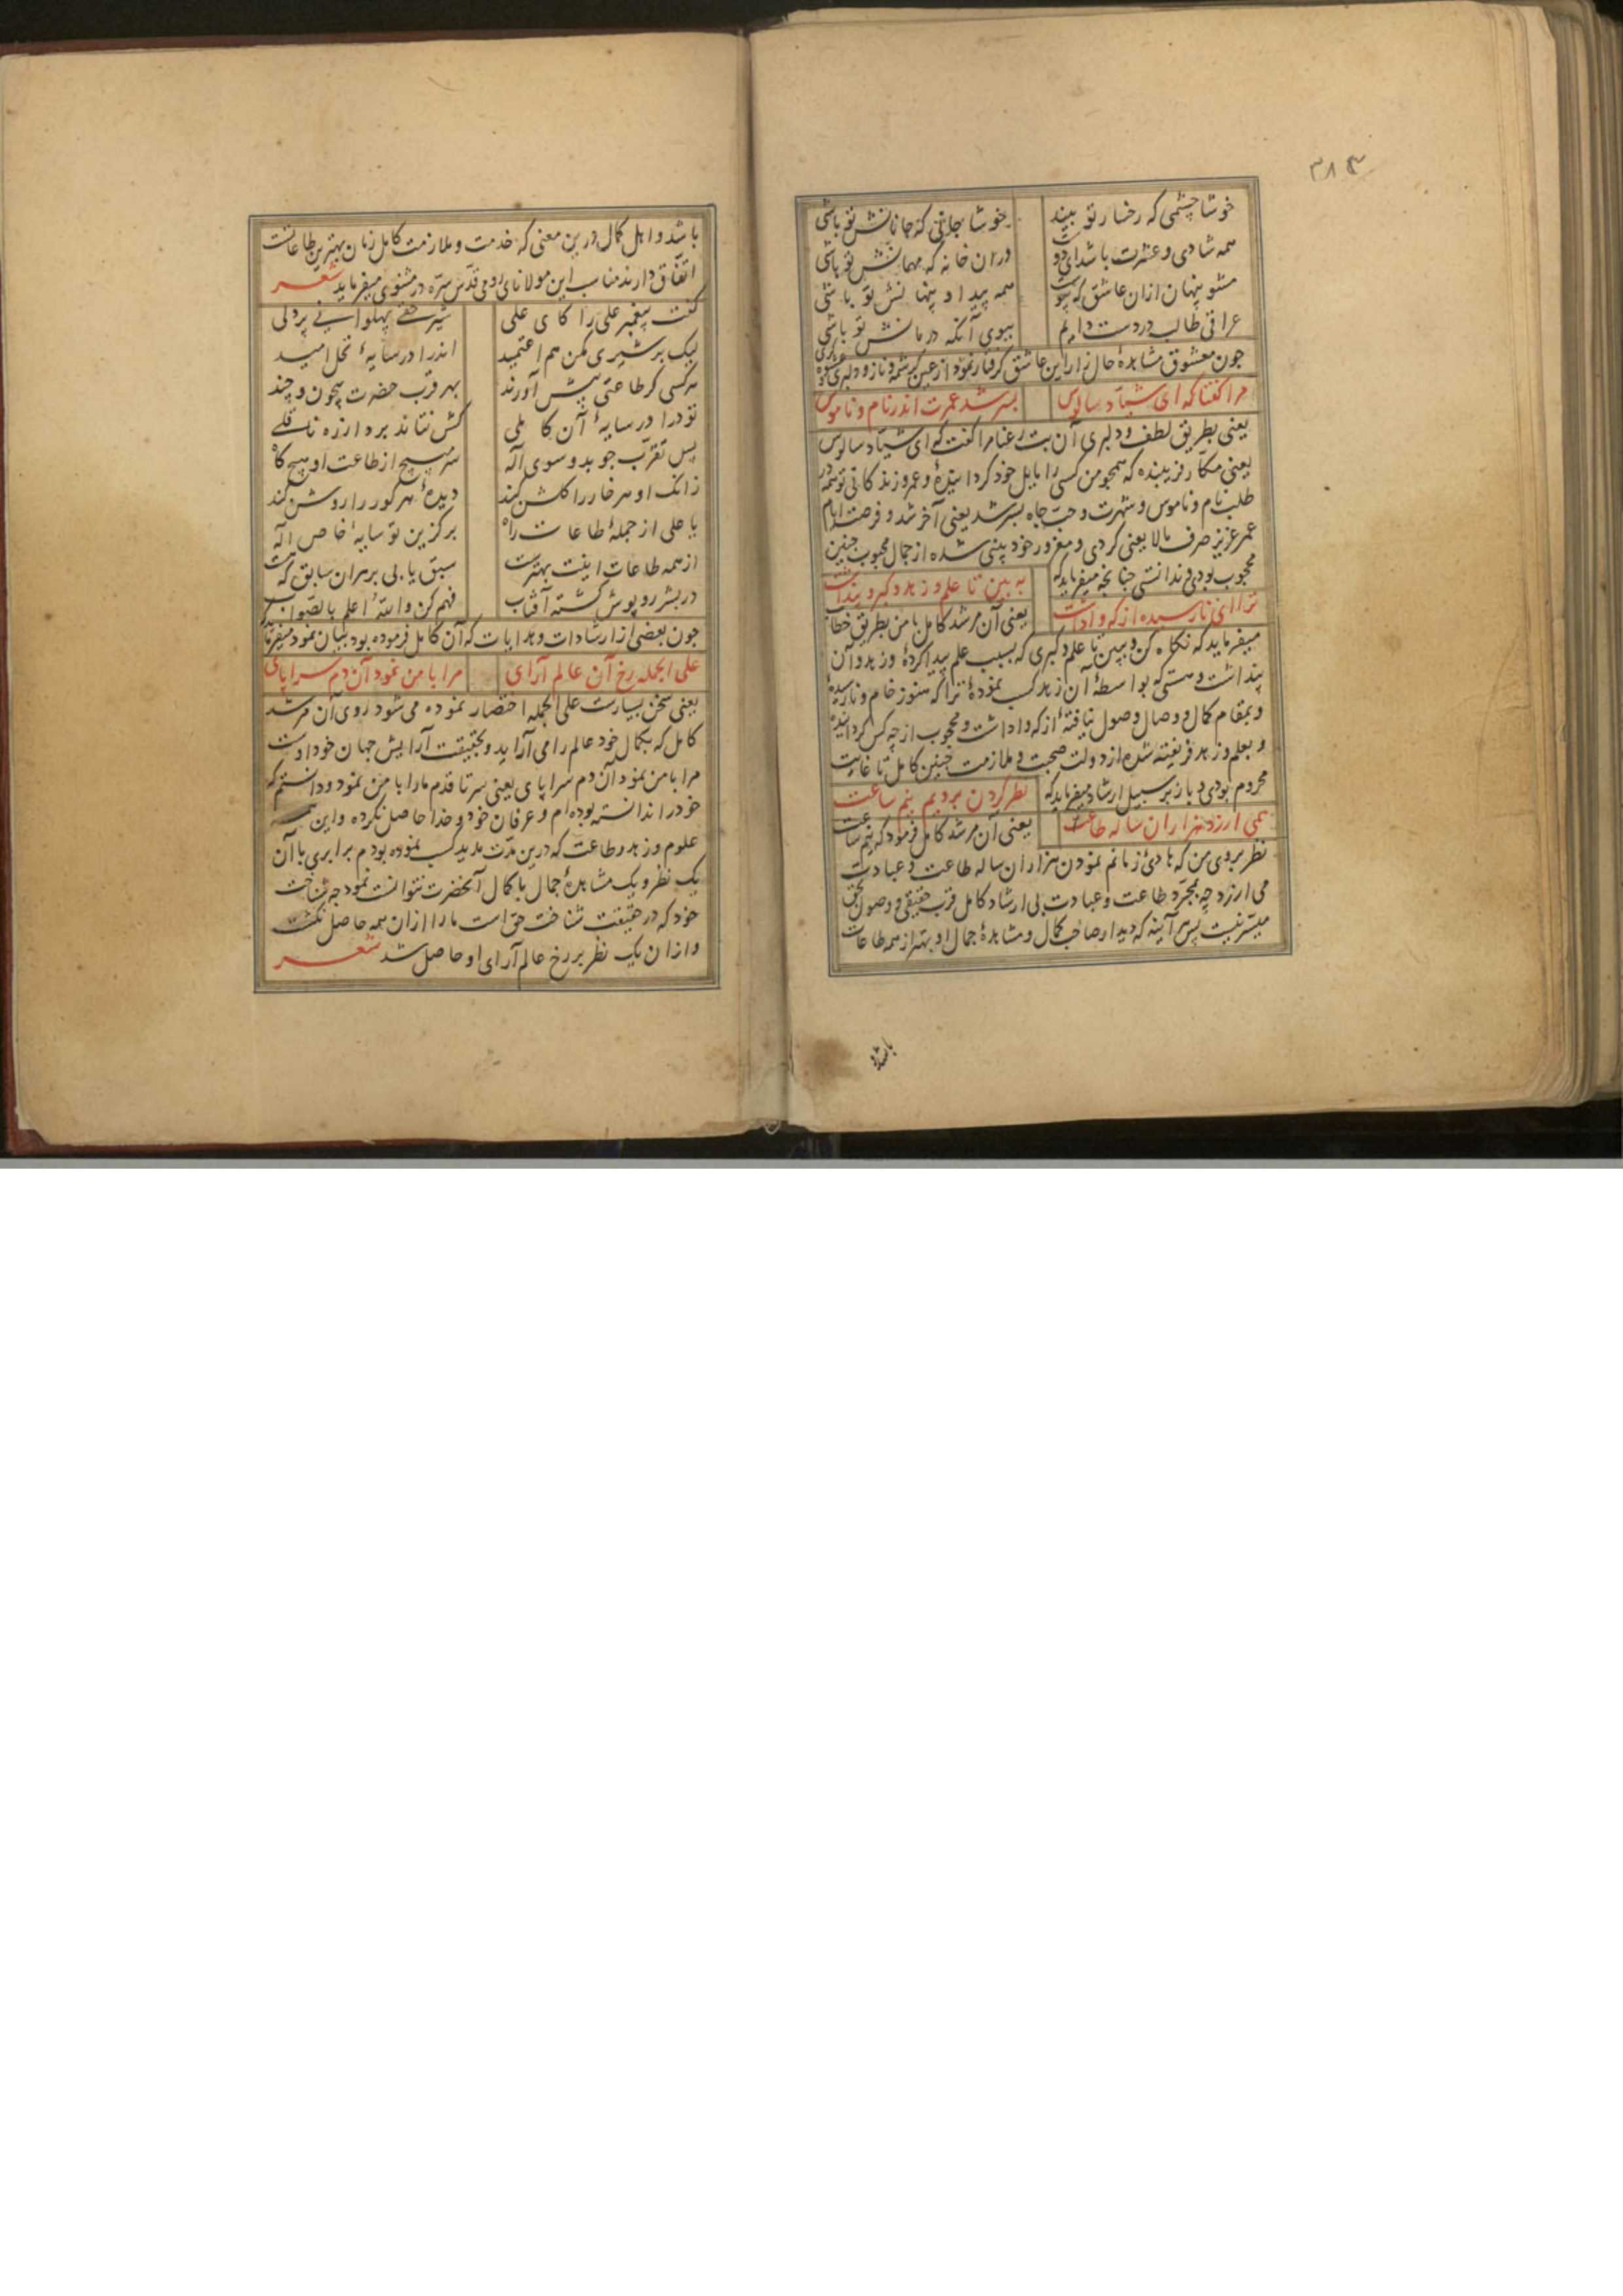 ۳۸۳
خوشا چشمی که رخسار تو بیند خوشا جانی که جانانش تو باشی
همه شادی و عشرت باشد ای دوست در ان خانه که مهمانش تو باشی
مشو پنهان ازان عاشق که پیوست همه پیدا و پنهانش تو باشی
عراقی طالب دردست دایم ببوی آنکه درمانش تو باشی
چون معشوق مشاهدهٔ حال زار این عاشق گرفتار نمود از عین کرشمه و ناز و دلبری و
مرا گفتا که ای شیاد سالوس بسر شد عمرت اندر نام و ناموس
یعنی بطریق لطف و دلبری آن بت رعنا مرا گفت که ای شیاد سالوس
یعنی مکار فریبنده که همچو من کسی را مایل خود گردانیدهٔ و عمر و زندگانی تو همه در
طلب نام و ناموس و شهرت و حب جاه بسر شد یعنی آخر شد و فرصت ایام
عمر عزیز صرف مالا یعنی کردی و مغرور خود بینی شده از جمال محبوب چنین
محجوب بودی و ندانستی چنانچه میفرماید که به بین تا علم و زهد و کبر و پنداشت
ترا ای نارسیده از که واداشت یعنی آن مرشد کامل با من بطریق خطاب
میفرماید که نگاه کن و ببین تا علم و کبری که بسبب علم پیدا کردهٔ و زهد و آن
پنداشت و هستی که بواسطهٔ آن زهد کسب نمودهٔ ترا که هنوز خام و نارسیدهٔ
و بمقام کمال و وصال وصول نیافتهٔ از که واداشت و محجوب از چه کس گردانیده
و بعلم و زهد فریفته شده از دولت صحبت و ملازمت چنین کامل تا غایت
محروم بودی و باز بر سبیل ارشاد میفرماید که نظر کردن برویم نیم ساعت
همی ارزد هزاران ساله طاعت یعنی آن مرشد کامل فرمود که نیم ساعت
نظر بروی من که هادئ زمانم نمودن هزاران ساله طاعت و عبادت
می ارزد چه بمجرد طاعت و عبادت بی ارشاد کامل قرب حقیقی و وصول بحق
میسر نیست پس هر آینه که دیدار صاحب کمال و مشاهدهٔ جمال او بهتر از همه طاعات
باشد و
باشد و اهل کمال درین معنی که خدمت و ملازمت کامل زمان بهترین طاعاتست
اتفاق دارند مناسب این مولانای رومی قدس سره در مثنوی میفرماید شعر
گفت پیغمبر علی را کای علی شیر حقی پهلوانی پردلی
لیک بر شیری مکن هم اعتمید اندرا در سایهٔ نخل امید
هر کسی گر طاعتی پیش آورند بهر قرب حضرت بیچون و چند
تو درا در سایهٔ آن کاملی کش نتاند برد از ره ناقلی
پس تقرب جو بدو سوی اله سر مپیچ از طاعت او هیچ گاه
زانک او هر خار را گلشن کند دیدهٔ هر کور را روشن کند
یا علی از جملهٔ طاعات راه برگزین تو سایهٔ خاص اله
از همه طاعات اینت بهترست سبق یابی بر هران سابق که هست
در بشر روپوش گشته آفتاب فهم کن والله اعلم بالصواب
چون بعضی از ارشادات و هدایات که آن کامل فرموده بود بیان نمود میفرماید که
علی الجمله رخ آن عالم آرای مرا با من نمود آن دم سراپای
یعنی سخن بسیارست علی الجمله اختصار نموده می شود روی آن مرشد
کامل که بکمال خود عالم را می آراید و بحقیقت آرایش جهان خود اوست
مرا با من نمود آن دم سراپای یعنی سر تا قدم ما را با من نمود و دانستم که
خود را ندانسته بوده ام و عرفان خود و خدا حاصل نکرده و این همه
علوم و زهد و طاعت که درین مدت مدید کسب نموده بودم برابری با آن
یک نظر و یک مشاهدهٔ جمال با کمال آنحضرت نتوانست نمود چه شناخت
خود که در حقیقت شناخت حق است ما را ازان همه حاصل نگشت
و ازان یک نظر بر رخ عالم آرای او حاصل شد شعر